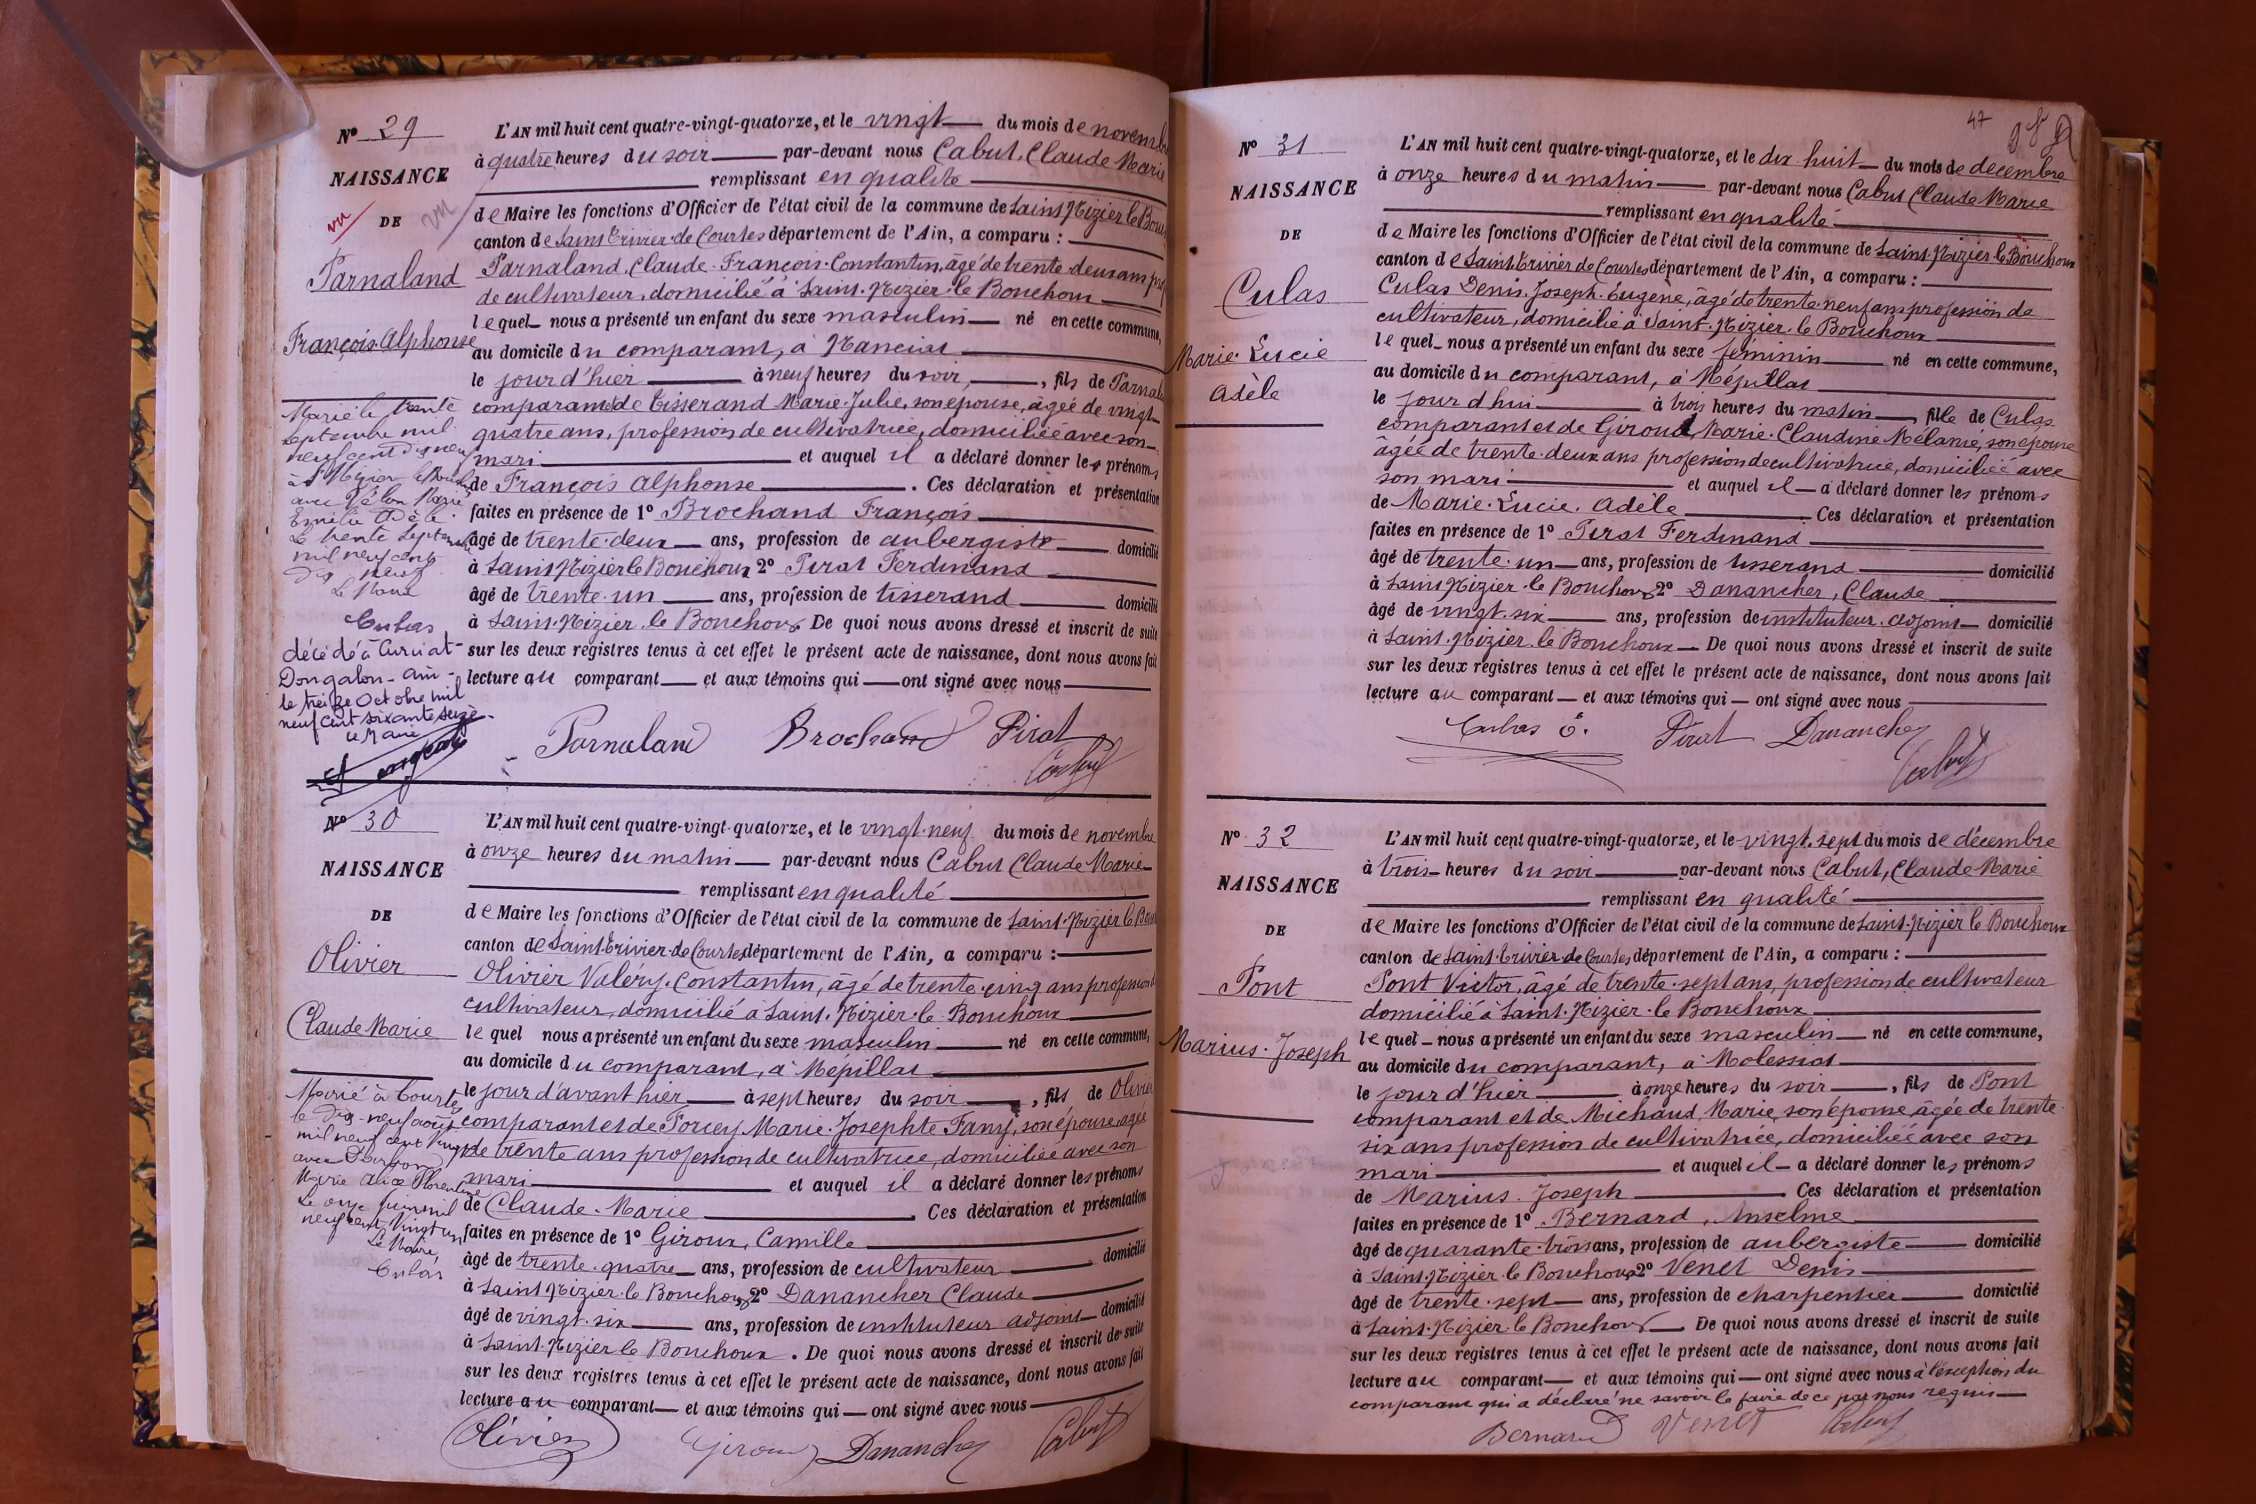 Nº 29
NAISSANCE
vu
DE
vu
Parnaland
François Alphonse
Marié le trente
septembre mil
neuf cent dix neuf
à St Nizier le Bouchoux
avec Vélon Marie
Emélie Adèle.
Le trente septembre
mil neuf cent
dix neuf
Le Maire
Culas
décédé à Curciat-
Dongalon - Ain -
le treize Octobre mil
neuf cent soixante seize.
Le Maire
L'AN mil huit cent quatre-vingt-quatorze, et le vingt du mois de novembre
à quatre heures du soir par-devant nous Cabut, Claude Marie
remplissant en qualité
de Maire les fonctions d'Officier de l'état civil de la commune de Saint Nizier le Bou
canton de Saint Trivier de Courtes département de l'Ain, a comparu :
Parnaland, Claude François Constantin, âgé de trente-deux ans prof
de cultivateur, domicilié à Saint-Nizier-le Bouchoux
lequel nous a présenté un enfant du sexe masculin né en cette commune,
au domicile du comparant, à Manciat
le jour d'hier à neuf heures du soir, fils de Parnala
comparant et de Tisserand Marie Julie, son épouse, âgée de vingt
quatre ans, profession de cultivatrice, domiciliée avec son
mari et auquel il a déclaré donner les prénoms
de François Alphonse. Ces déclaration et présentation
faites en présence de 1º Brochand François
âgé de trente-deux ans, profession de aubergiste domicilié
à Saint Nizier le Bouchoux 2º Pirat Ferdinand
âgé de trente-un ans, profession de tisserand domicilié
à Saint-Nizier le Bouchoux De quoi nous avons dressé et inscrit de suite
sur les deux registres tenus à cet effet le présent acte de naissance, dont nous avons fait
lecture au comparant et aux témoins qui ont signé avec nous
Parnaland Brochand Pirat
Cabut
Nº 30
NAISSANCE
DE
Olivier
Claude Marie
Marié à Courtes
le dix-neuf août
mil neuf cent vingt
avec
Marie Alice Florentine
Le onze juin mil
neuf cent vingt un
Le Maire,
Culas
L'AN mil huit cent quatre-vingt-quatorze, et le vingt-neuf du mois de novembre
à onze heures du matin par-devant nous Cabut Claude Marie
remplissant en qualité
de Maire les fonctions d'Officier de l'état civil de la commune de Saint-Nizier le Bou
canton de Saint Trivier-de Courtes département de l'Ain, a comparu :
Olivier Valéry-Constantin, âgé de trente-cinq ans profession d
cultivateur, domicilié à Saint-Nizier-le-Bouchoux
lequel nous a présenté un enfant du sexe masculin né en cette commune,
au domicile du comparant, à Mépillat
le jour d'avant hier à sept heures du soir, fils de Olivier
comparant et de Forcey Marie-Josephte Fany, son épouse âgée
de trente ans profession de cultivatrice, domiciliée avec son
mari et auquel il a déclaré donner les prénoms
de Claude-Marie. Ces déclaration et présentation
faites en présence de 1º Giroux, Camille
âgé de trente-quatre ans, profession de cultivateur domicilié
à Saint Nizier le Bouchoux 2º Danancher Claude
âgé de vingt-six ans, profession de instituteur adjoint domicilié
à Saint-Nizier le Bouchoux. De quoi nous avons dressé et inscrit de suite
sur les deux registres tenus à cet effet le présent acte de naissance, dont nous avons fait
lecture au comparant et aux témoins qui ont signé avec nous
Olivier Giroux Danancher Cabut
47
Nº 31
NAISSANCE
DE
Culas
Marie-Lucie
Adèle
L'AN mil huit cent quatre-vingt-quatorze, et le dix-huit du mois de décembre
à onze heures du matin par-devant nous Cabut Claude Marie
remplissant en qualité
de Maire les fonctions d'Officier de l'état civil de la commune de Saint-Nizier le Bouchoux
canton de Saint-Trivier de Courtes département de l'Ain, a comparu :
Culas Denis-Joseph-Eugène, âgé de trente-neuf ans profession de
cultivateur, domicilié à Saint-Nizier-le Bouchoux
lequel nous a présenté un enfant du sexe féminin né en cette commune,
au domicile du comparant, à Mépillat
le jour d'hui à trois heures du matin, fille de Culas
comparant et de Giroud, Marie-Claudine Mélanie, son épouse
âgée de trente-deux ans profession de cultivatrice, domiciliée avec
son mari et auquel il a déclaré donner les prénoms
de Marie-Lucie-Adèle Ces déclaration et présentation
faites en présence de 1º Pirat Ferdinand
âgé de trente-un ans, profession de tisserand domicilié
à Saint Nizier-le Bouchoux 2º Danancher, Claude
âgé de vingt-six ans, profession de instituteur-adjoint domicilié
à Saint-Nizier-le Bouchoux De quoi nous avons dressé et inscrit de suite
sur les deux registres tenus à cet effet le présent acte de naissance, dont nous avons fait
lecture au comparant et aux témoins qui ont signé avec nous
Culas é. Pirat Danancher
Cabut
Nº 32
NAISSANCE
DE
Pont
Marius-Joseph
L'AN mil huit cent quatre-vingt-quatorze, et le vingt-sept du mois de décembre
à trois heures du soir par-devant nous Cabut, Claude Marie
remplissant en qualité
de Maire les fonctions d'Officier de l'état civil de la commune de Saint-Nizier le Bouchoux
canton de Saint-Trivier de Courtes département de l'Ain, a comparu :
Pont Victor, âgé de trente-sept ans, profession de cultivateur
domicilié à Saint-Nizier-le Bouchoux
lequel nous a présenté un enfant du sexe masculin né en cette commune,
au domicile du comparant, à Molessiat
le jour d'hier à onze heures du soir, fils de Pont
comparant et de Michaud Marie, son épouse âgée de trente-
six ans profession de cultivatrice, domiciliée avec son
mari et auquel il a déclaré donner les prénoms
de Marius-Joseph. Ces déclaration et présentation
faites en présence de 1º Bernard, Anselme
âgé de quarante-trois ans, profession de aubergiste domicilié
à Saint-Nizier-le Bouchoux 2º Venet Denis
âgé de trente-sept ans, profession de charpentier domicilié
à Saint-Nizier-le Bouchoux. De quoi nous avons dressé et inscrit de suite
sur les deux registres tenus à cet effet le présent acte de naissance, dont nous avons fait
lecture au comparant et aux témoins qui ont signé avec nous à l'exception du
comparant qui a déclaré ne savoir le faire de ce par nous requis
Bernard Venet Cabut